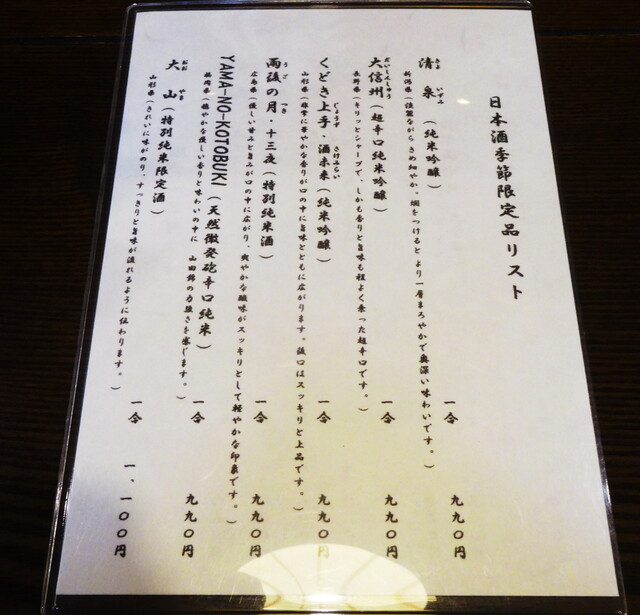 日本酒季節限定品リスト
きよ いずみ
清泉（純米吟醸） 一合 九九〇円
新潟県（淡麗ながらきめ細やか。燗をつけるとより一層まろやかで奥深い味わいです。）
だいしんしゅう
大信州（超辛口純米吟醸） 一合 九九〇円
長野県（キリッとシャープで、しかも香りと旨味も程よく乗った超辛口です。）
じょうず さけみらい
くどき上手・酒未来（純米吟醸） 一合 九九〇円
山形県（非常に華やかな香りが口の中に旨味とともに広がります。後口はスッキリと上品です。）
うご つき
雨後の月・十三夜（特別純米酒） 一合 九九〇円
広島県（優しい甘みと旨みが口の中に広がり、爽やかな酸味がスッキリとして軽やかな印象です。）
YAMA-NO-KOTOBUKI（天然微発砲辛口純米） 一合 九九〇円
福岡県（穏やかな優しい香りと味わいの中に 山田錦の力強さを感じます。）
おお やま
大山（特別純米限定酒） 一合 一、一〇〇円
山形県（きれいに味がのり、すっきりと旨味が流れるように伝わります。）